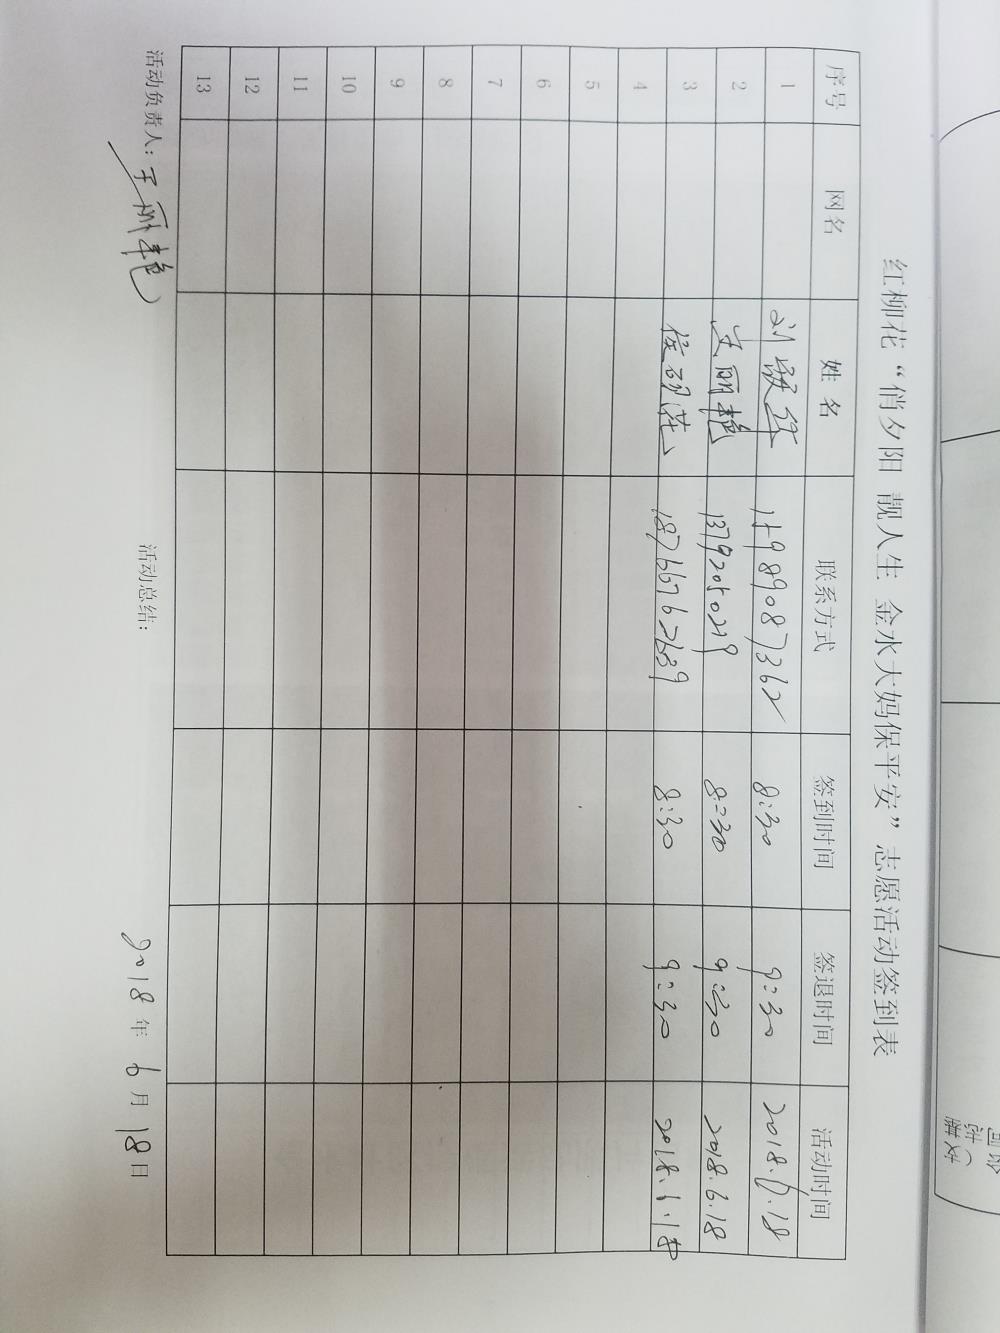 红柳花“俏夕阳 靓人生 金水大妈保平安”志愿活动签到表
序号 网名 姓名 联系方式 签到时间 签退时间 活动时间
1 15989087362 8:30 9:30 2018.6.18
2 丽艳 13792050219 8:30 9:30 2018.6.18
3 18766762639 8:30 9:30 2018.6.18
4
5
6
7
8
9
10
11
12
13
活动负责人: 丽艳 活动总结: 2018年6月18日